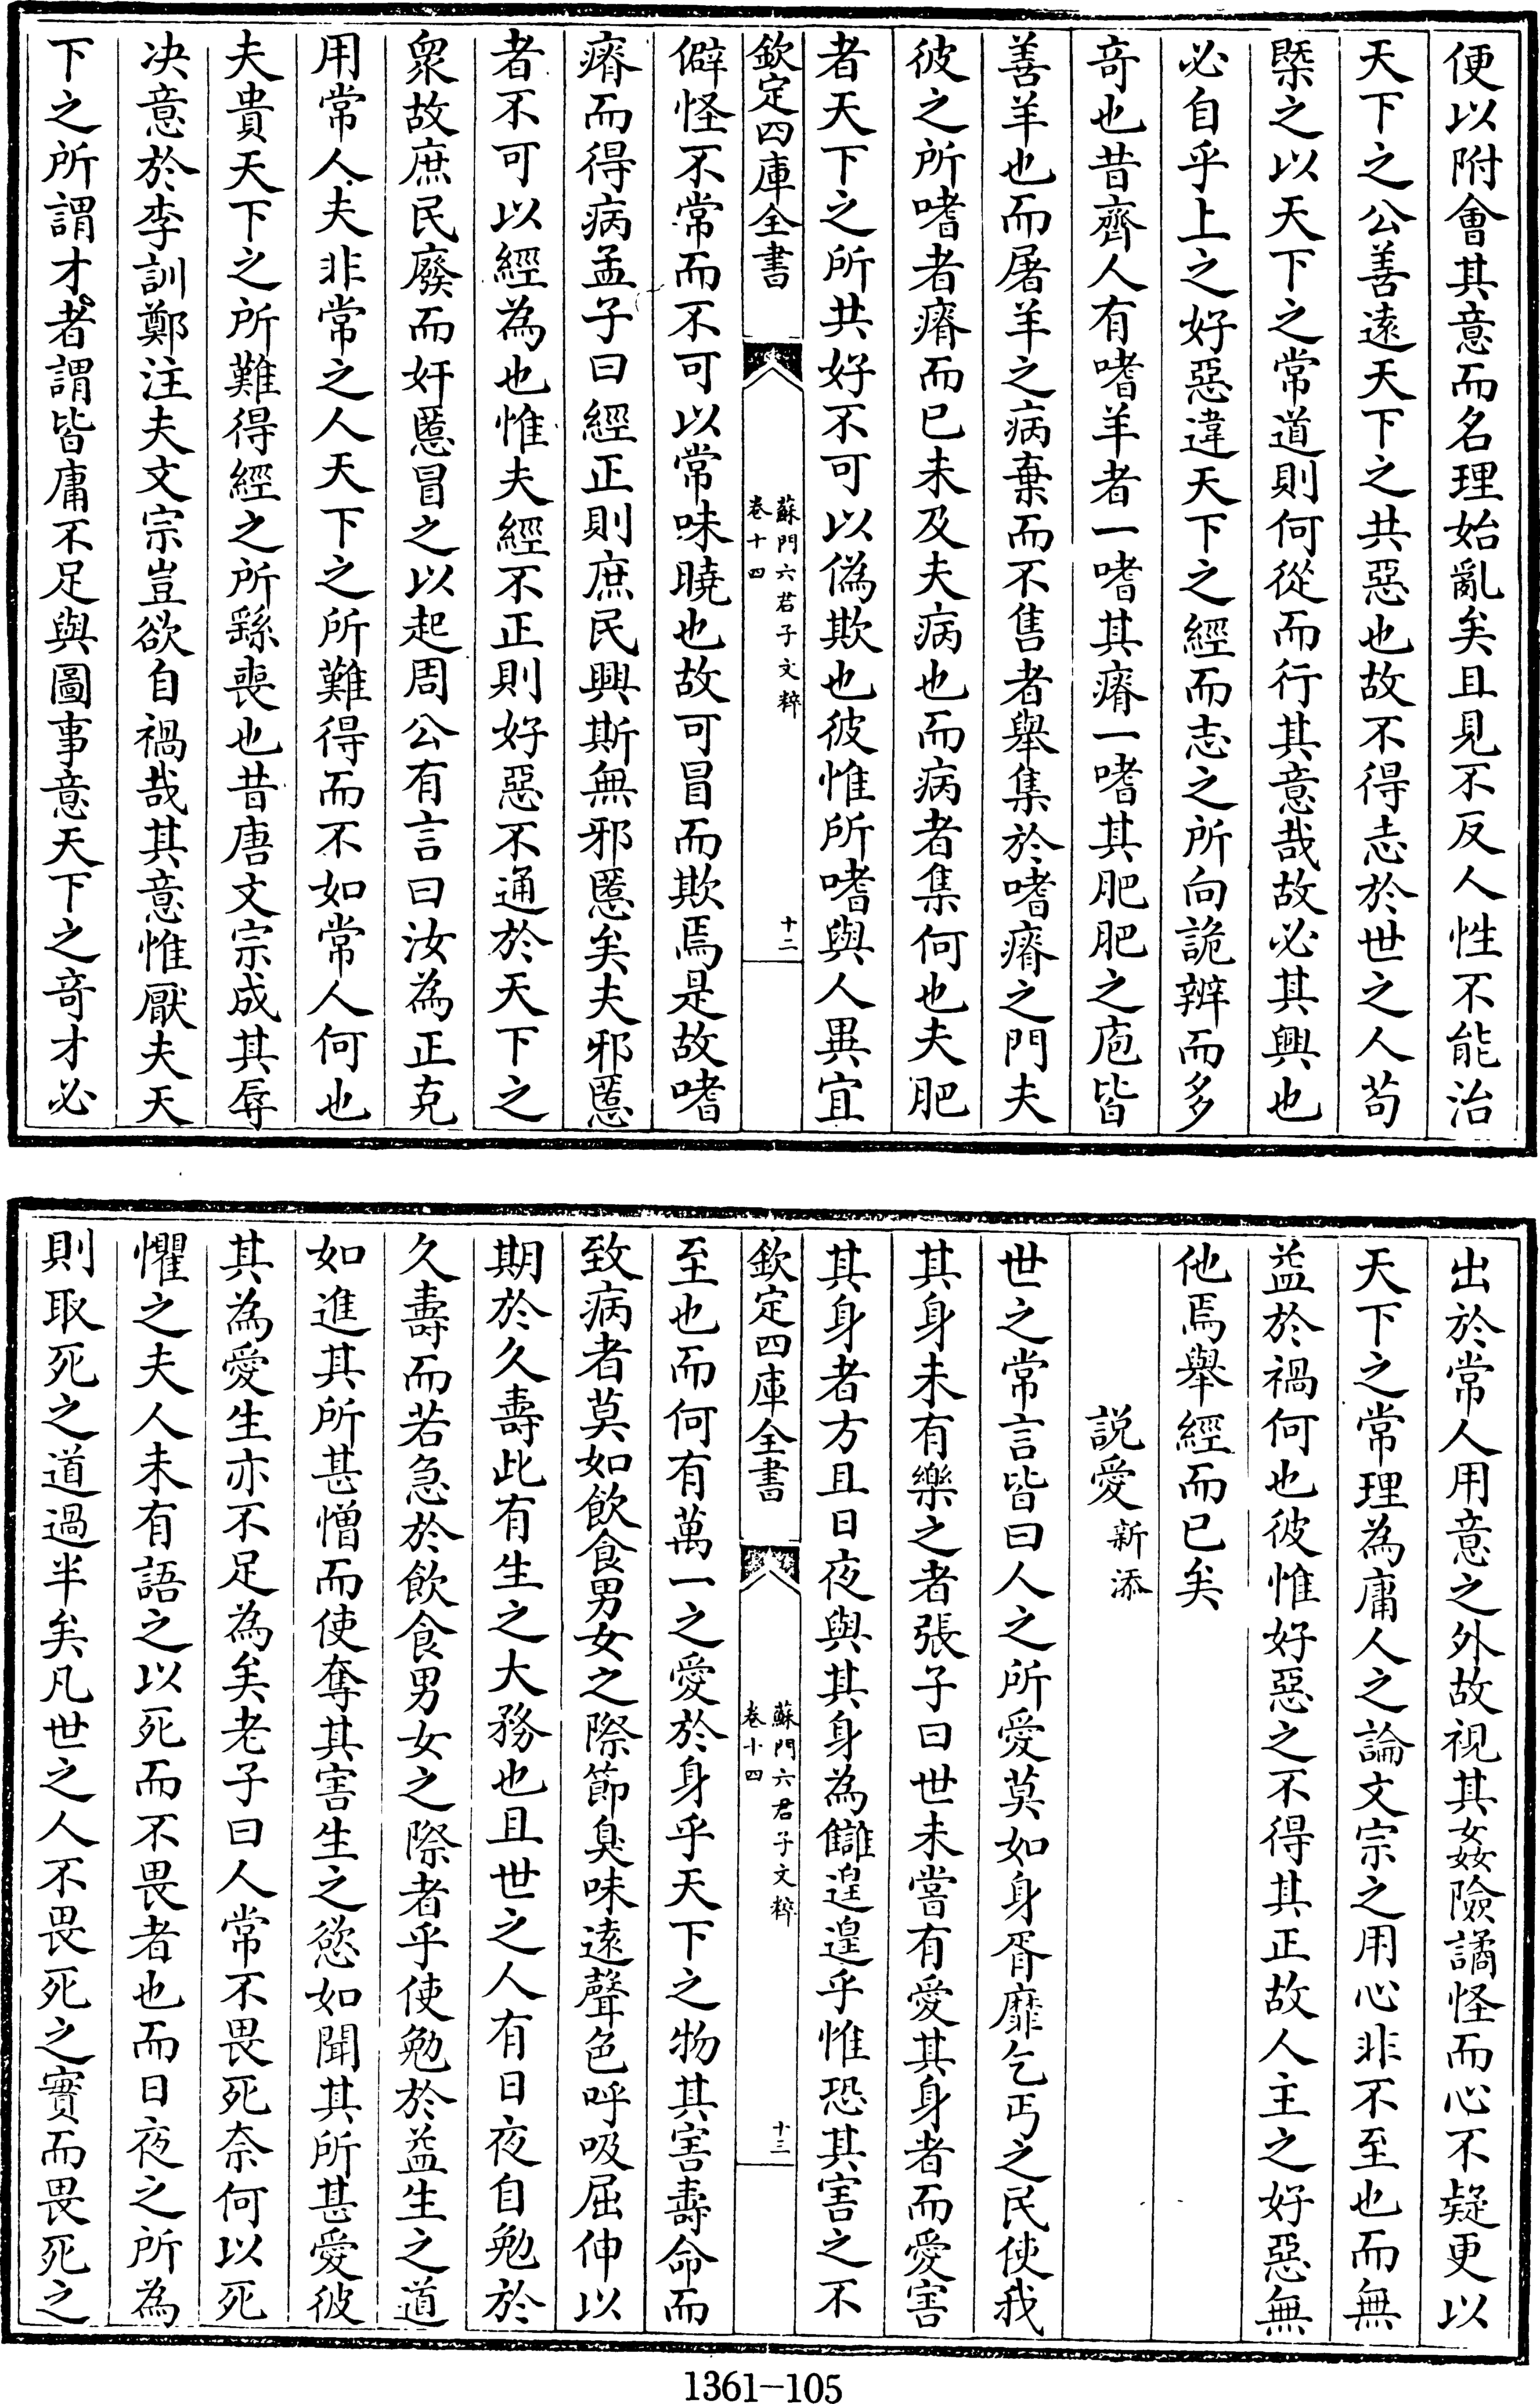 便以附會其意而名理始亂矣且見不反人性不能治
天下之公善遠天下之共惡也故不得志於世之人苟
槩之以天下之常道則何從而行其意哉故必其興也
必自乎上之好惡違天下之經而志之所向詭辨而多
奇也昔齊人有嗜羊者一嗜其瘠一嗜其肥肥之庖皆
善羊也而屠羊之病棄而不售者舉集於嗜瘠之門夫
彼之所嗜者瘠而已未及夫病也而病者集何也夫肥
者天下之所共好不可以偽欺也彼惟所嗜與人異宜
欽定四庫全書
蘇門六君子文粹
卷十四
十二
僻怪不常而不可以常味曉也故可冒而欺焉是故嗜
瘠而得病孟子曰經正則庶民興斯無邪慝矣夫邪慝
者不可以經為也惟夫經不正則好惡不通於天下之
衆故庶民廢而奸慝冒之以起周公有言曰汝為正克
用常人夫非常之人天下之所難得而不如常人何也
夫貴天下之所難得經之所繇喪也昔唐文宗成其辱
决意於李訓鄭注夫文宗豈欲自禍哉其意惟厭夫天
下之所謂才者謂皆庸不足與圖事意天下之奇才必
出於常人用意之外故視其姦險譎怪而心不疑更以
天下之常理為庸人之論文宗之用心非不至也而無
益於禍何也彼惟好惡之不得其正故人主之好惡無
他焉舉經而已矣
説愛新添
世之常言皆曰人之所愛莫如身胥靡乞丐之民使我
其身未有樂之者張子曰世未嘗有愛其身者而愛害
其身者方且日夜與其身為讎遑遑乎惟恐其害之不
欽定四庫全書
蘇門六君子文粹
卷十四
十三
至也而何有萬一之愛於身乎天下之物其害壽命而
致病者莫如飲食男女之際節臭味遠聲色呼吸屈伸以
期於久壽此有生之大務也且世之人有日夜自勉於
久壽而若急於飲食男女之際者乎使勉於益生之道
如進其所甚憎而使奪其害生之慾如聞其所甚愛彼
其為愛生亦不足為矣老子曰人常不畏死奈何以死
懼之夫人未有語之以死而不畏者也而日夜之所為
則取死之道過半矣凡世之人不畏死之實而畏死之
1361-105